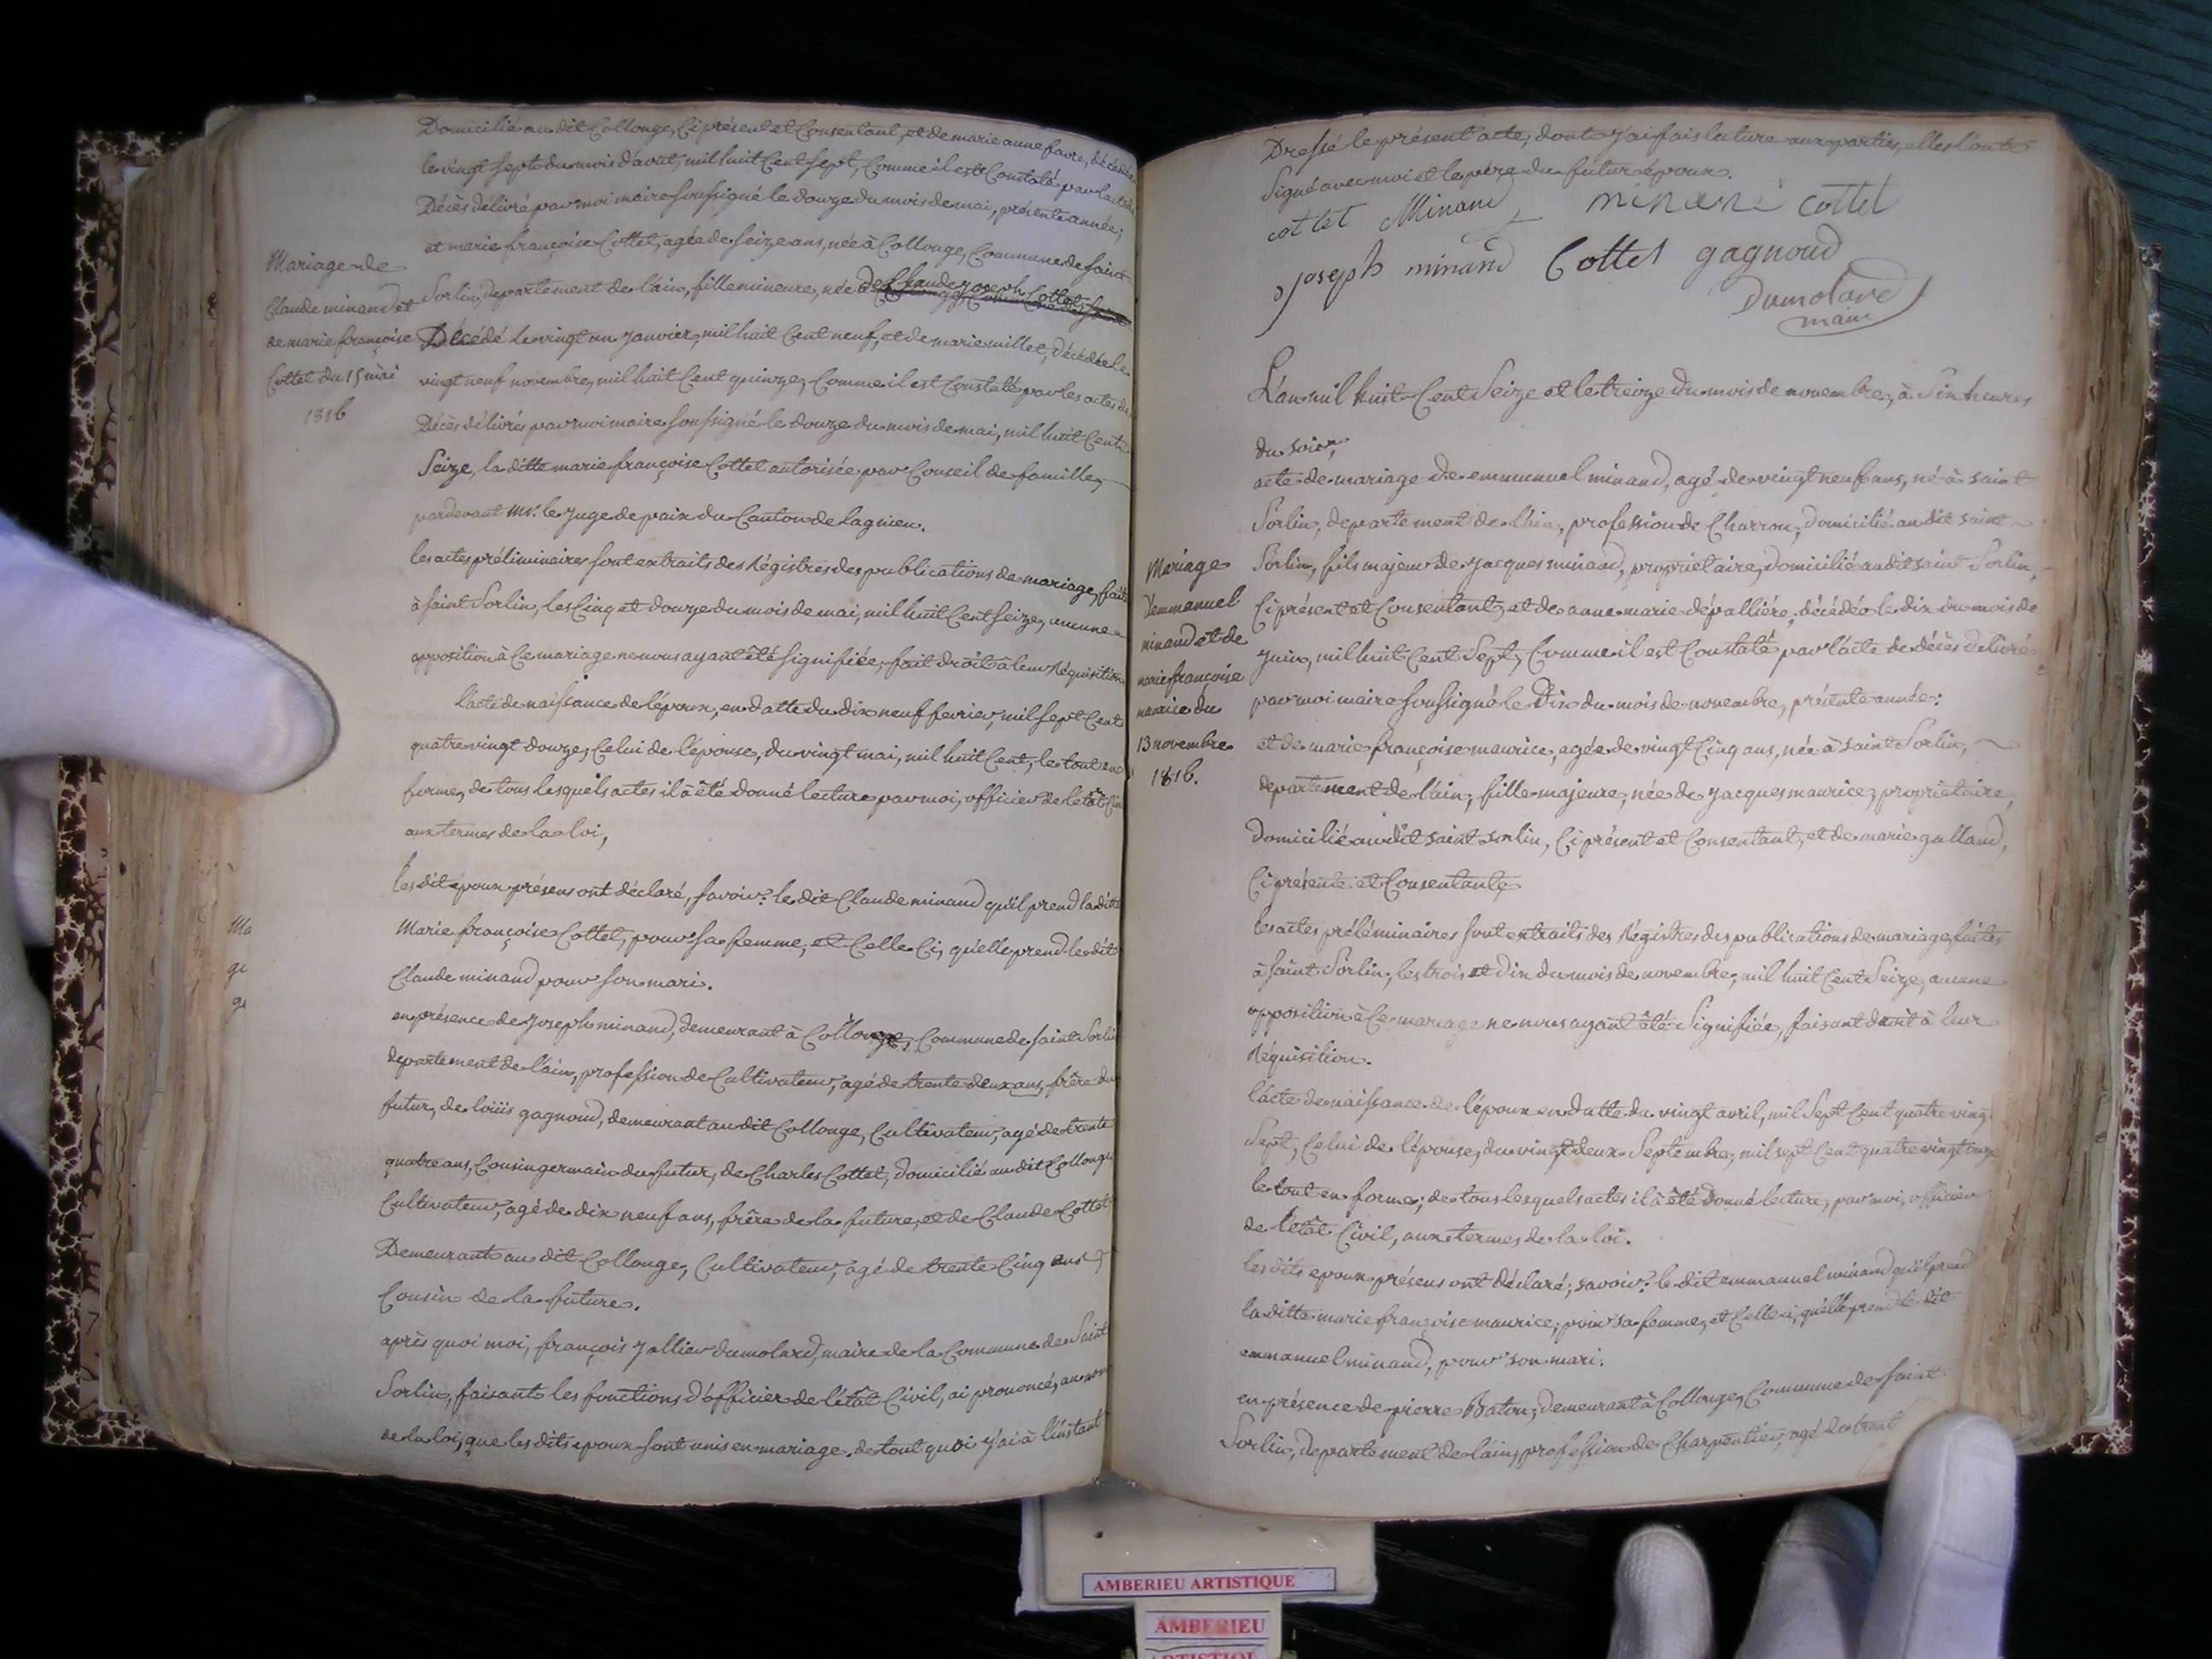 Domicilié au dit Collonge, Ci présent et Consentant, et de marie anne favre, décédée
le vingt sept du mois d'aout, mil huit Cent sept, Comme il est Constaté par l'acte de
Décès délivré par moi maire soussigné le douze du mois de mai, présente année;
et marie françoise Cottet, agée de seize ans, née à Collonge, Commune de saint
Mariage de
Claude minand et
de marie françoise
Cottet du 15 mai
1816
Sorlin, departement de l'ain, fille mineure, née de Claude joseph Cottet,
Décédé le vingt un janvier, mil huit Cent neuf, et de marie millet, décédée le
vingt neuf novembre, mil huit Cent quinze, Comme il est Constaté par les actes de
Décès délivrés par moi maire soussigné le douze du mois de mai, mil huit Cent
Seize, la ditte marie françoise Cottet autorisée par Conseil de famille,
pardevant mr. le juge de paix du Canton de lagnieu.
les actes préliminaires sont extraits des Régistres des publications de mariage, faites
à saint Sorlin, les Cinq et douze du mois de mai, mil huit Cent seize, aucune
opposition à Ce mariage ne nous ayant été signifiée, fait droit à leur Réquisition
l'acte de naissance de l'époux, en datte du dix neuf fevrier, mil sept Cent
quatre vingt douze, Celui de l'épouse, du vingt mai, mil huit Cent, le tout en
forme, de tous lesquels actes il à été donné lecture par moi, officier de l'état Civil
aux termes de la loi,
les dit époux présens ont déclaré, savoir: le dit Claude minand qu'il prend la ditte
Marie françoise Cottet, pour sa femme, et Celle Ci, qu'elle prend le dit
Claude minand pour son mari.
Ma
ge
ge
en présence de joseph minand, demeurant à Collonge, Commune de saint Sorlin
departement de l'ain, profession de Cultivateur, agé de trente deux ans, frère du
futur, de loüis gagnoud, demeurant au dit Collonge, Cultivateur, agé de trente
quatre ans, Cousin germain du futur, de Charles Cottet, domicilié au dit Collonge
Cultivateur, agé de dix neuf ans, frère de la future, et de Claude Cottet
Demeurant au dit Collonge, Cultivateur, agé de trente Cinq ans
Cousin de la future.
après quoi moi, françois jallier dumolard, maire de la Commune de Saint
Sorlin, faisant les fonctions d'officier de l'état Civil, ai prononcé, au nom
de la loi, que les dits epoux sont unis en mariage. de tout quoi j'ai à l'instant
Dressé le présent acte, dont j'ai fais lecture aux parties, elles l'ont
Signé avec moi et le père du futur époux.
cottet Minand minand cottet
joseph minand Cottet gagnoud
Dumolard
maire
L'an mil huit Cent Seize et le treize du mois de novembre, à Six heures
du soir,
acte de mariage de emmanuel minand, agé de vingt neuf ans, né à saint
Sorlin, departement de l'ain, profession de Charron, domicilié au dit saint
Mariage
d'emmanuel
minand et de
marie françoise
maurice du
13 novembre
1816.
Sorlin, fils majeur de jacques minand, propriétaire, domicilié au dit saint Sorlin,
Ci présent et Consentant, et de anne marie dépallière, décédée le dix du mois de
juin, mil huit Cent Sept, Comme il est Constaté par l'acte de décès délivré
par moi maire soussigné le Dix du mois de novembre, présente année:
et de marie françoise maurice, agée de vingt Cinq ans, née à saint Sorlin,
departement de l'ain, fille majeure, née de jacques maurice, propriétaire,
domicilié au dit saint sorlin, Ci présent et Consentant, et de marie gulland,
Ci présente et Consentante
les actes préléminaires sont extraits des Régistres des publications de mariage, faites
à saint Sorlin, les trois et dix du mois de novembre, mil huit Cent Seize, aucune
opposition à Ce mariage ne nous ayant été Signifiée, faisant droit à leur
Réquisition.
l'acte de naissance de l'époux en datte du vingt avril, mil Sept Cent quatre ving
Sept, Celui de l'épouse, du vingt deux Septembre, mil sept Cent quatre vingt onze
le tout en forme; de tous lesquels actes il à été donné lecture, par moi, officier
de l'état Civil, aux termes de la loi.
les dits epoux présens ont déclaré; savoir: le dit emmanuel minand qu'il prend
la ditte marie françoise maurice, pour sa femme, et Celle ci, qu'elle prend le dit
emmanuel minand, pour son mari.
en présence de pierre Baton, demeurant à Collonge, Commune de saint
Sorlin, departement de l'ain, profession de Charpentier, agé de trent
AMBERIEU ARTISTIQUE
AMBERIEU
ARTISTIQUE